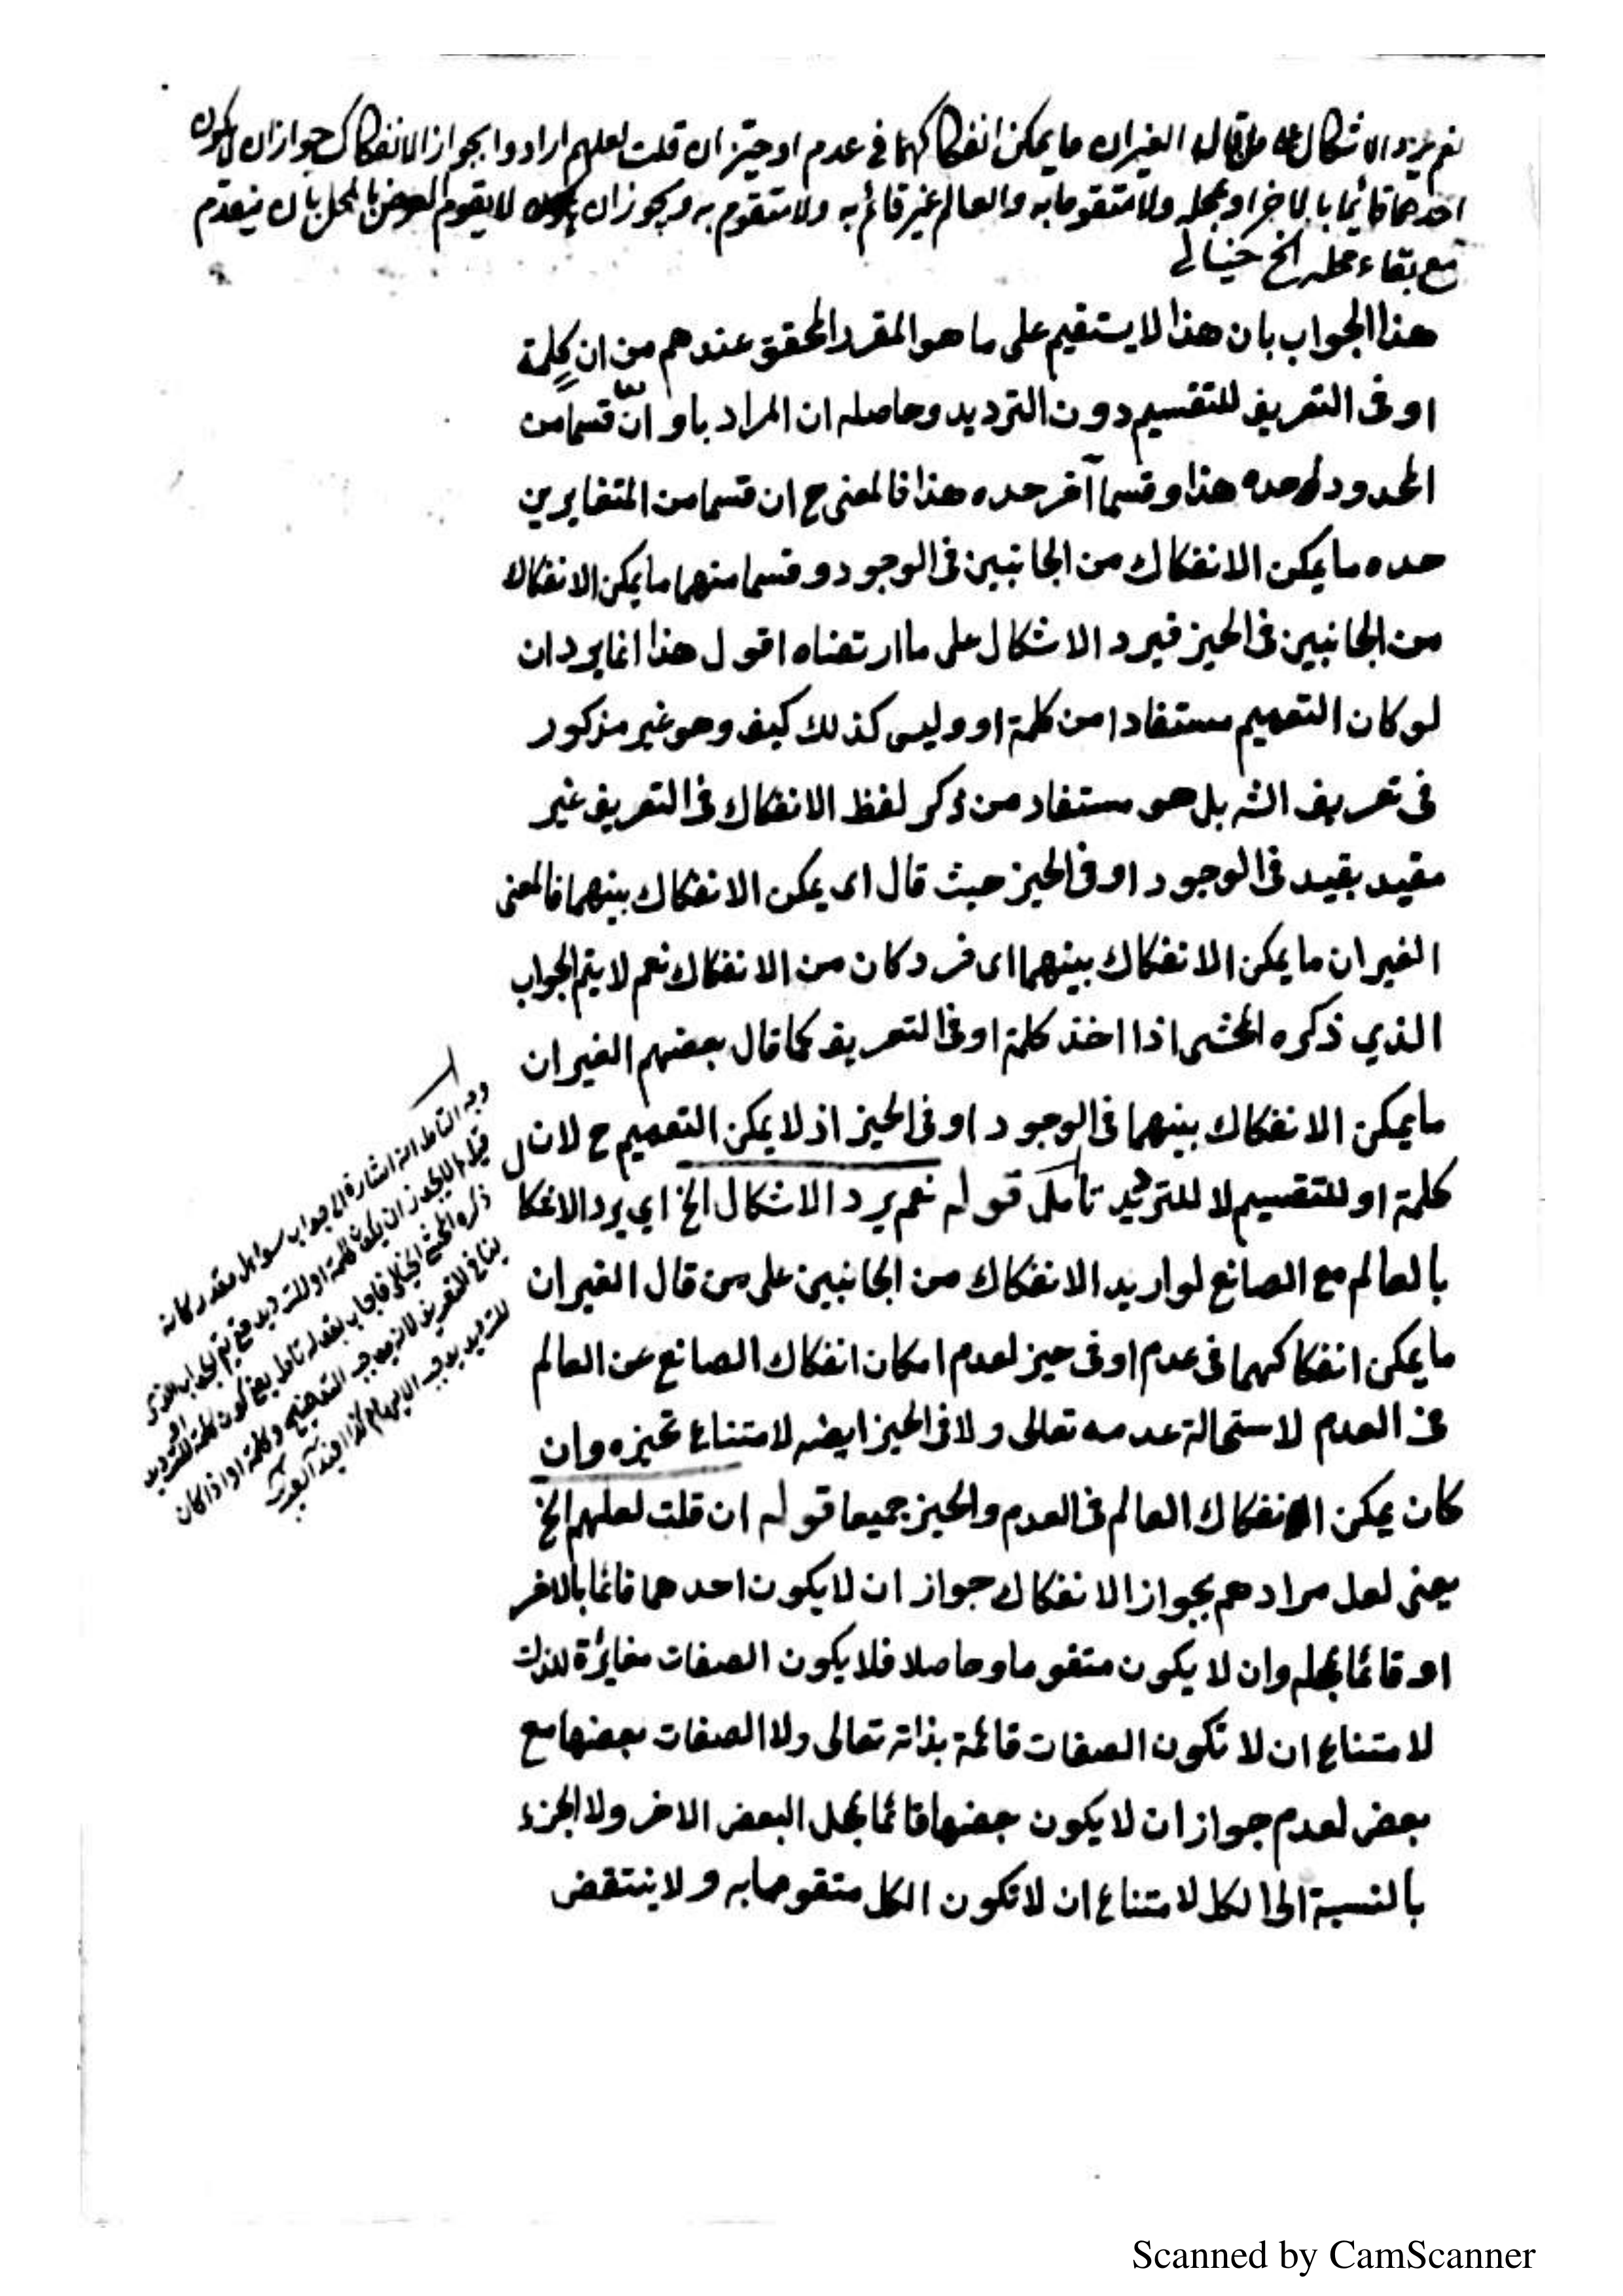 نعم يرد الاشكال على من قال الغيران ما يمكن انفكاكهما فى عدم او حيز ان قلت لعلهم ارادوا بجواز الانفكاك جواز ان لا يكون
احدهما قائما بالاخر او بمحله ولا متقوما به والعالم غير قائم به ولا متقوم به ويجوز ان لا يقوم العرض بالمحل بان ينعدم
مع بقاء محله الخ خيالى
هذا الجواب بان هذا لا يستقيم على ما هو المقرر المحقق عندهم من ان كلمة
او فى التعريف للتقسيم دون الترديد وحاصله ان المراد باو ان قسما من
المحدود حده هذا وقسما آخر حده هذا فالمعنى ح ان قسما من المتغايرين
حده ما يمكن الانفكاك من الجانبين فى الوجود وقسما منهما ما يمكن الانفكاك
من الجانبين فى الحيز فيرد الاشكال على ما ارتضاه اقول هذا انما يرد ان
لو كان التعميم مستفادا من كلمة او وليس كذلك كيف وهو غير مذكور
فى تعريف الشه بل هو مستفاد من ذكر لفظ الانفكاك فى التعريف غير
مقيد بقيد فى الوجود او فى الحيز حيث قال اى يمكن الانفكاك بينهما فالمعنى
الغيران ما يمكن الانفكاك بينهما اى فرد كان من الانفكاك نعم لا يتم الجواب
الذي ذكره المحشى اذا اخذ كلمة او فى التعريف كما قال بعضهم الغيران
ما يمكن الانفكاك بينهما فى الوجود او فى الحيز اذ لا يمكن التعميم ح لان
كلمة او للتقسيم لا للترديد تأمل قوله نعم يرد الاشكال الخ اي يرد الاشكال
بالعالم مع الصانع لو اريد الانفكاك من الجانبين على من قال الغيران
ما يمكن انفكاكهما فى عدم او فى حيز لعدم امكان انفكاك الصانع عن العالم
فى العدم لاستحالة عدمه تعالى ولا فى الحيز ايضه لامتناع تحيزه وان
كان يمكن انفكاك العالم فى العدم والحيز جميعا قوله ان قلت لعلهم الخ
يعنى لعل مرادهم بجواز الانفكاك جواز ان لا يكون احدهما قائما بالاخر
او قائما بمحله وان لا يكون متقوما وحاصلا فلا يكون الصفات مغايرة للذات
لامتناع ان لا تكون الصفات قائمة بذاته تعالى ولا الصفات بعضها مع
بعض لعدم جواز ان لا يكون بعضها قائما بمحل البعض الاخر ولا الجزء
بالنسبة الى الكل لامتناع ان لا تكون الكل متقوما به ولا ينتقض
وجه التأمل انه اشارة الى جواب سؤال مقدر كانه
قيل لم لا يجوز ان يكون كلمة او للترديد فح يتم الجواب الذى
ذكره المحشى الخيالى فاجاب بقوله تأمل يعنى كون كلمة او للترديد
ينافى التعريف لانه يوجب التوضيح وكلمة او اذا كان
للترديد يوجب الابهام
Scanned by CamScanner